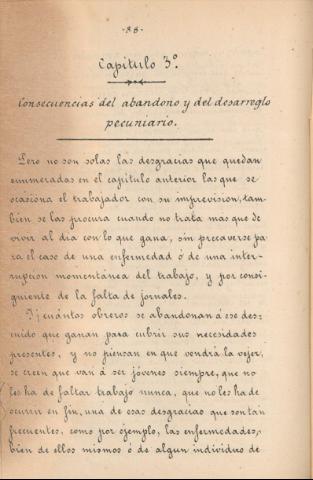 -38-
Capítulo 3º.
Consecuencias del abandono y del desarreglo
pecuniario.
Pero no son solas las desgracias que quedan
enumeradas en el capítulo anterior las que se
ocasiona el trabajador con su imprevisión, tam-
bién se las procura cuando no trata mas que de
vivir al dia con lo que gana, sin precaverse pa-
ra el caso de una enfermedad ó de una inter-
rupcion momentánea del trabajo, y por consi-
guiente de la falta de jornales.
Y ¡cuántos obreros se abandonan á ese des-
cuido que ganan para cubrir sus necesidades
presentes, y no piensan en que vendrá la vejez,
se creen que van á ser jóvenes siempre, que no
les ha de faltar trabajo nunca, que no les ha de
ocurrir en fin, una de esas desgracias que son tan
frecuentes, como por ejemplo, las enfermedades,
bien de ellos mismos ó de algun individuo de